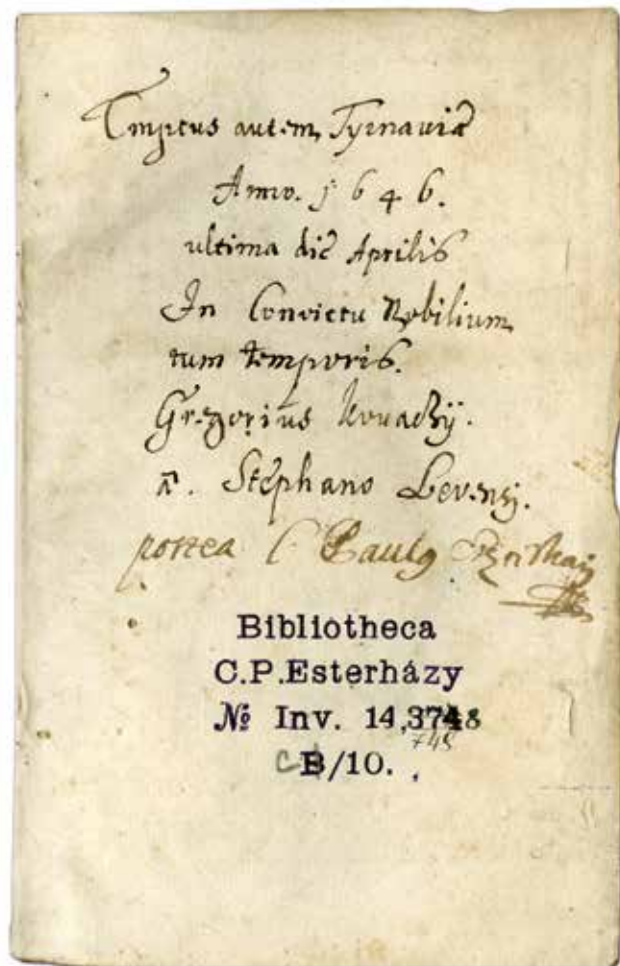 Emptus autem Tyrnaviæ
Anno. 1646.
ultima die Aprilis
In Convictu Nobilium
tum temporis.
Gregorius Kouachÿ.
à. Stephano
postea C Paulg
Bibliotheca
C.P.Esterházy
№ Inv. 14,374
B/10.